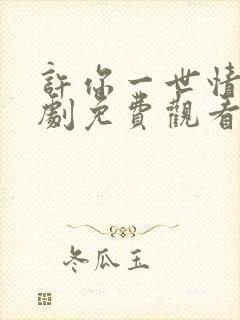 許你一世情
劇免費觀看
冬瓜玉